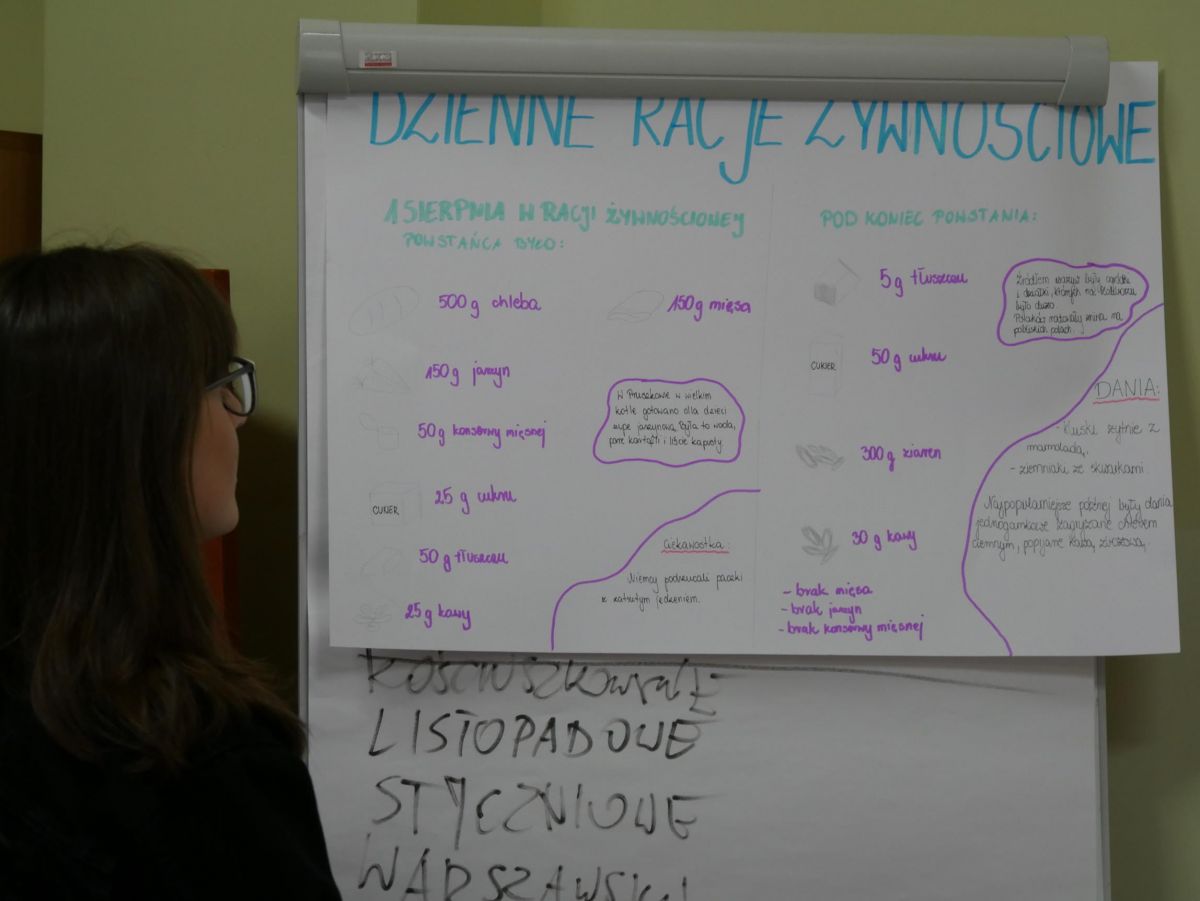 DZIENNE RACJE ŻYWNOŚCIOWE
1 SIERPNIA W RACJI ŻYWNOŚCIOWEJ
POWSTAŃCA BYŁO:
500 g chleba
150 g mięsa
150 g jarzyn
50 g konserwy mięsnej
CUKIER
25 g cukru
50 g tłuszczu
25 g kawy
W Pruszkowie w wielkim
kotle gotowano dla dzieci
zupę jarzynową. Była to woda,
parę kartofli i liście kapusty.
Ciekawostka:
Niemcy podrzucali paczki
z zatrutym jedzeniem.
POD KONIEC POWSTANIA:
5 g tłuszczu
CUKIER
50 g cukru
300 g ziaren
30 g kawy
- brak mięsa
- brak jarzyn
- brak konserwy mięsnej
Źródłem warzyw były ogródki
i działki, których na
było dużo.
na
pobliskich polach.
DANIA:
- kluski żytnie z
marmoladą,
- ziemniaki ze skwarkami.
Najpopularniejsze później były dania
jednogarnkowe zagryzane chlebem
ciemnym, popijane kawą zbożową.
KOŚCIUSZKOWSKIE
LISTOPADOWE
STYCZNIOWE
WARSZAWSKI